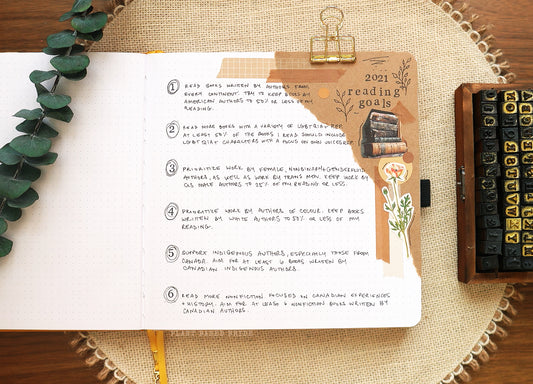 2021
reading
goals
1 READ BOOKS WRITTEN BY AUTHORS FROM
EVERY CONTINENT. TRY TO KEEP BOOKS BY
AMERICAN AUTHORS TO 50% OR LESS OF MY
READING.
2 READ MORE BOOKS WITH A VARIETY OF LGBTQIA+ REP.
AT LEAST 50% OF THE BOOKS I READ SHOULD INCLUDE
LGBTQIA+ CHARACTERS WITH A FOCUS ON OWN VOICES REP.
3 PRIORITIZE WORK BY FEMALE, NONBINARY + GENDERFLUID
AUTHORS, AS WELL AS WORK BY TRANS MEN. KEEP WORK BY
CIS MALE AUTHORS TO 25% OF MY READING OR LESS.
4 PRIORITIZE WORK BY AUTHORS OF COLOUR. KEEP BOOKS
WRITTEN BY WHITE AUTHORS TO 50% OR LESS OF MY
READING.
5 SUPPORT INDIGENOUS AUTHORS, ESPECIALLY THOSE FROM
CANADA. AIM FOR AT LEAST 6 BOOKS WRITTEN BY
CANADIAN INDIGENOUS AUTHORS.
6 READ MORE NONFICTION FOCUSED ON CANADIAN EXPERIENCES
+ HISTORY. AIM FOR AT LEAST 6 NONFICTION BOOKS WRITTEN BY
CANADIAN AUTHORS.